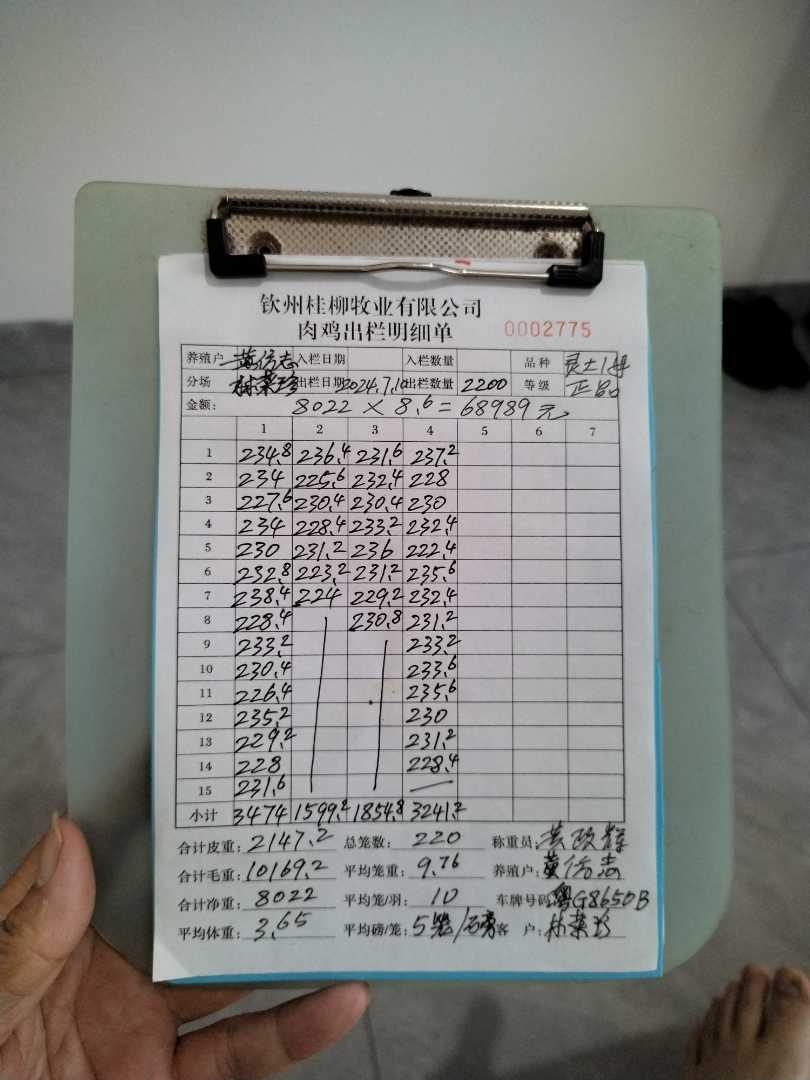 钦州桂柳牧业有限公司
肉鸡出栏明细单 0002775
养殖户 黄信志 入栏日期 入栏数量 品种 灵土1号
分场 林荣珍 出栏日期 2024.7.10 出栏数量 2200 等级 正品
金额: 8022 × 8.6 = 68989元
1 2 3 4 5 6 7
1 234.8 236.4 231.6 237.2
2 234 225.6 232.4 228
3 227.6 230.4 230.4 230
4 234 228.4 233.2 232.4
5 230 231.2 236 222.4
6 232.8 223.2 231.2 235.6
7 238.4 224 229.2 232.4
8 228.4 230.8 231.2
9 233.2 233.2
10 230.4 233.6
11 226.4 235.6
12 235.2 230
13 229.2 231.2
14 228 228.4
15 231.6
小计 3474 1599.2 1854.8 3241.2
合计皮重: 2147.2 总笼数: 220 称重员:
合计毛重: 10169.2 平均笼重: 9.76 养殖户: 黄信志
合计净重: 8022 平均笼/羽: 10 车牌号码 粤G8650B
平均体重: 3.65 平均磅/笼: 5笼/磅 客户: 林荣珍